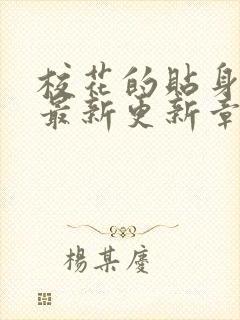 校花的貼身
最新更新章
楊某慶